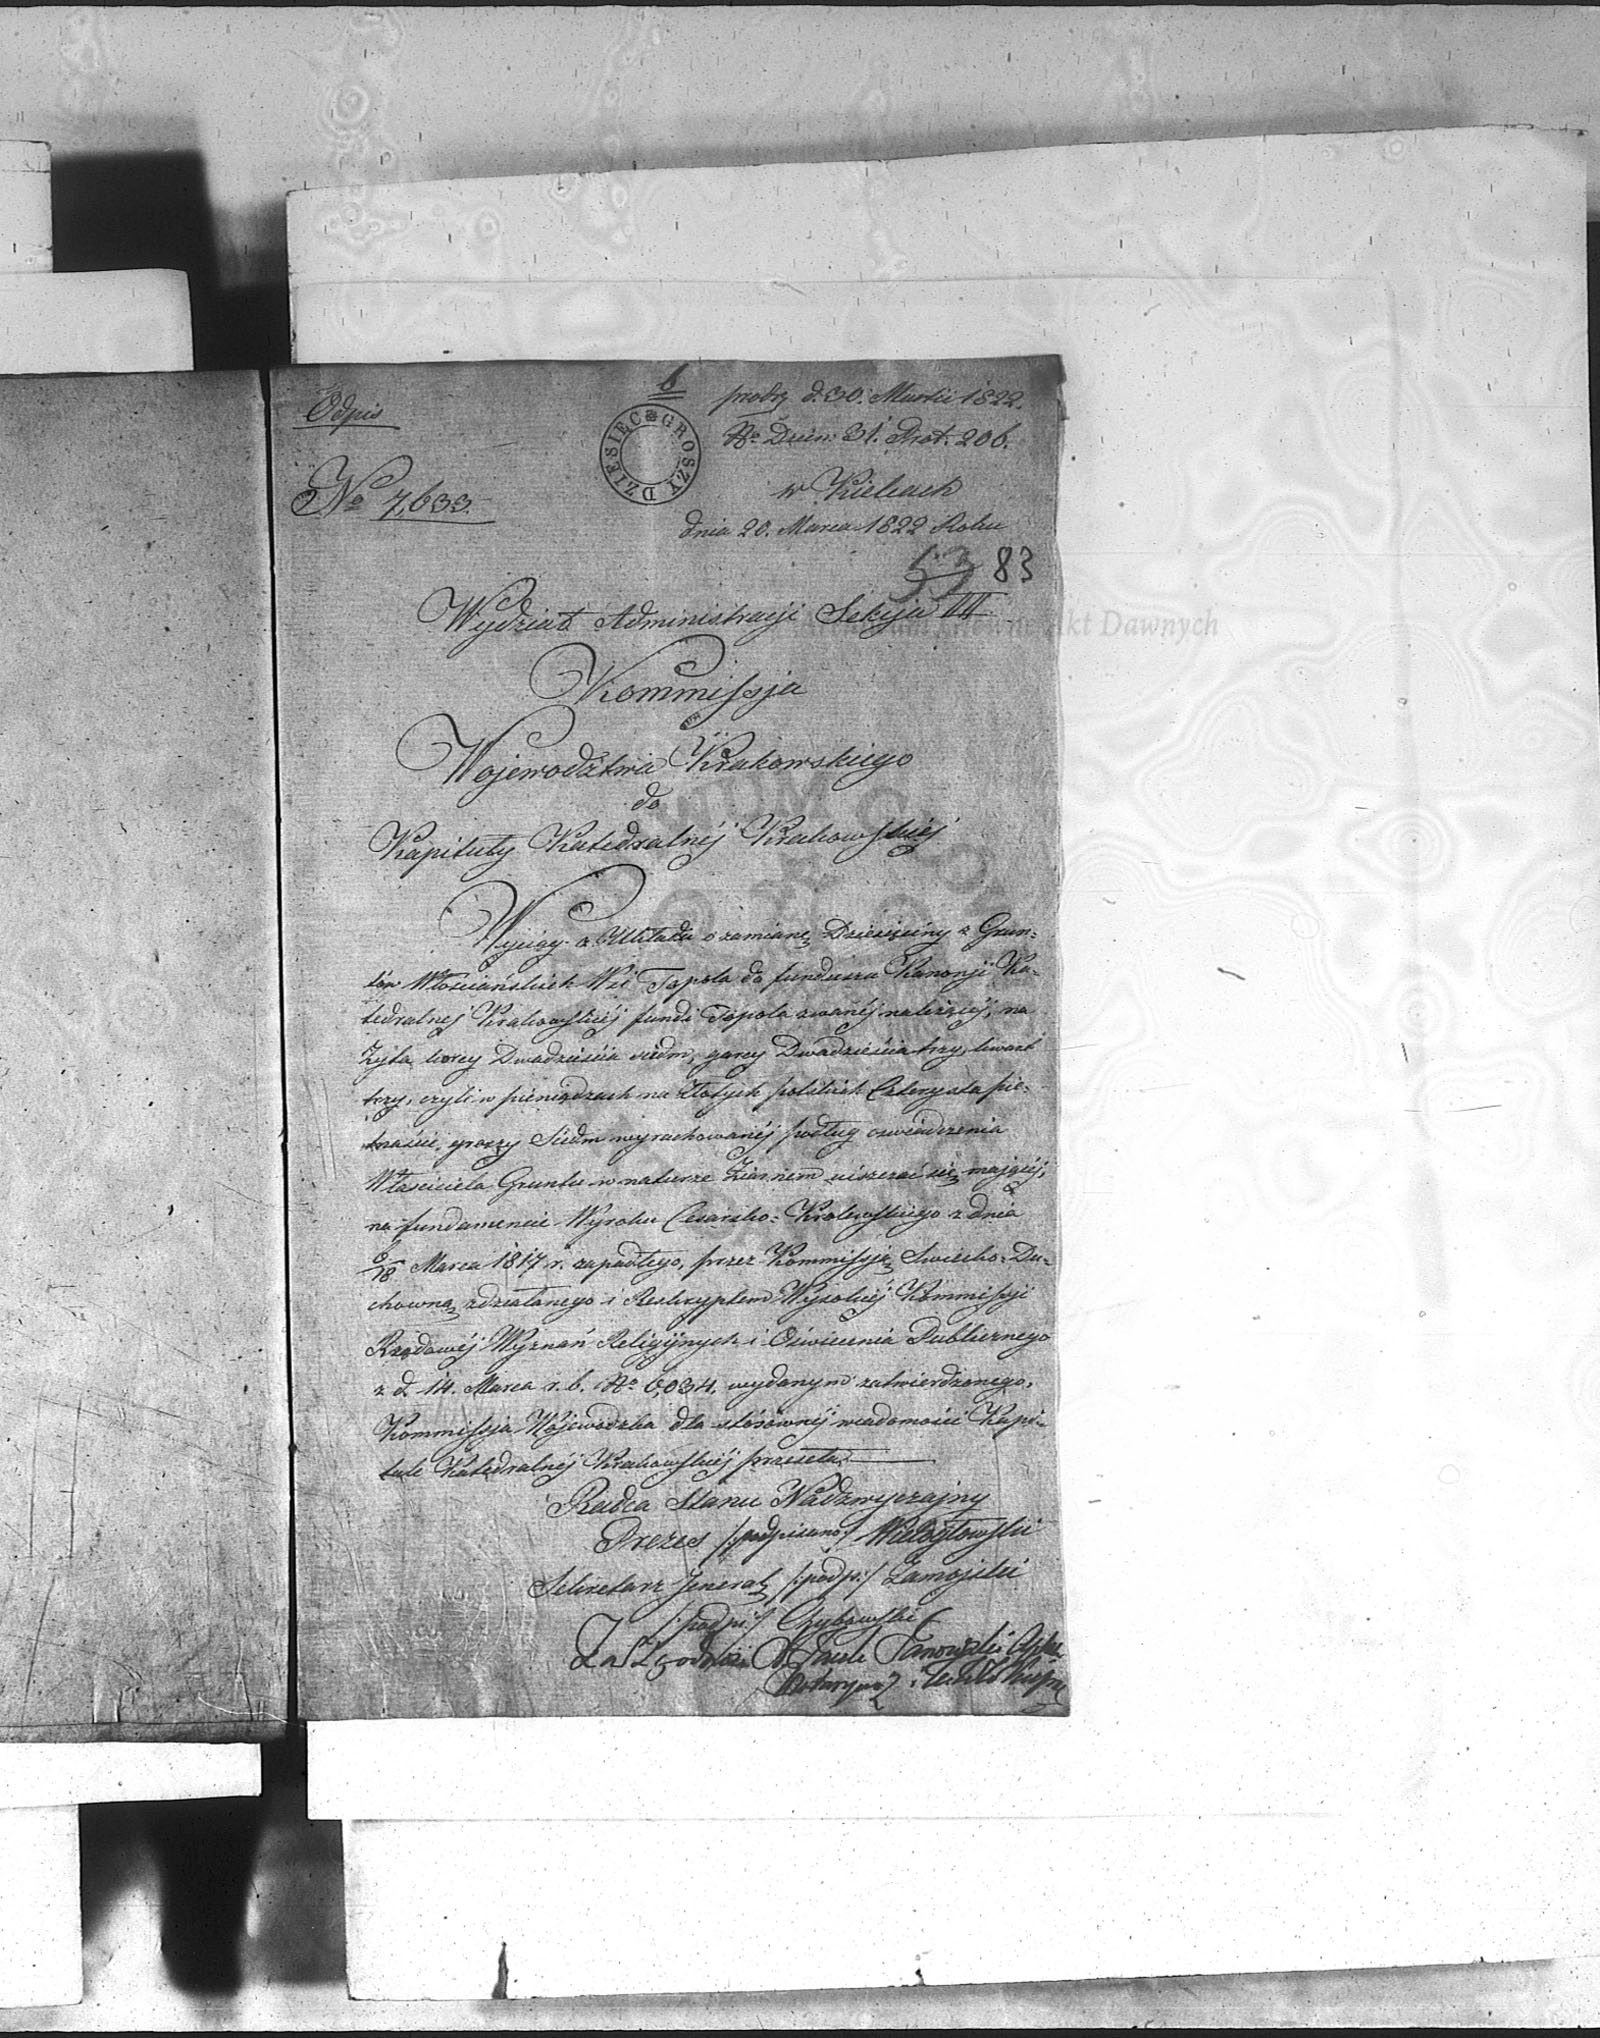 Odpis
6
DZIESIĘC GROSZY
d. 30. Martii 1822.
No Dzien: 31. Prot. 206.
No 7,633.
w Kielcach
dnia 20. Marca 1822 Roku
53 83
Wydział Administracji Sekcja III
Kommissja
Województwa Krakowskiego
do
Kapituły Katedralnéj Krakowskiéj
Wyciąg z Układu o zamianę Dziesięciny z Grun=
tów Włościańskich Wsi Topola do funduszu Kanonji Ka=
tedralnej Krakowskiéj fundi Topola zwanéj należącéj, na
Żyta korcy Dwadzieścia siedm, garcy Dwadzieścia trzy, kwart
trzy, czyli w pieniądzach na Złotych polskich Czterysta pię=
tnaście, groszy Siedm wyrachowanéj podług oświadczenia
Właściciela Gruntu w naturze Ziarnem uiszczać się mającéj,
na fundamencie Wyroku Cesarsko=Królewskiego z dnia
6/18 Marca 1817 r. zapadłego, przez Kommissję Swiecko=Du=
chowną zdziałanego i Reskryptem Wysokiéj Kommissji
Rządowéj Wyznań Religijnych i Oświecenia Publicznego
z d. 14. Marca r. b. No 6,034. wydanym zatwierdzonego,
Kommissja Wojewódzka dla stósownéj wiadomości Kapi=
tule Katedralnéj Krakowskiéj przeseła.
Radca Stanu Nadzwyczajny
Prezes /:podpisano:/ Wielogłowski
Sekretarz Jeneral. /:podp:/ Zamojski
/:podp:/
Za Zgodność